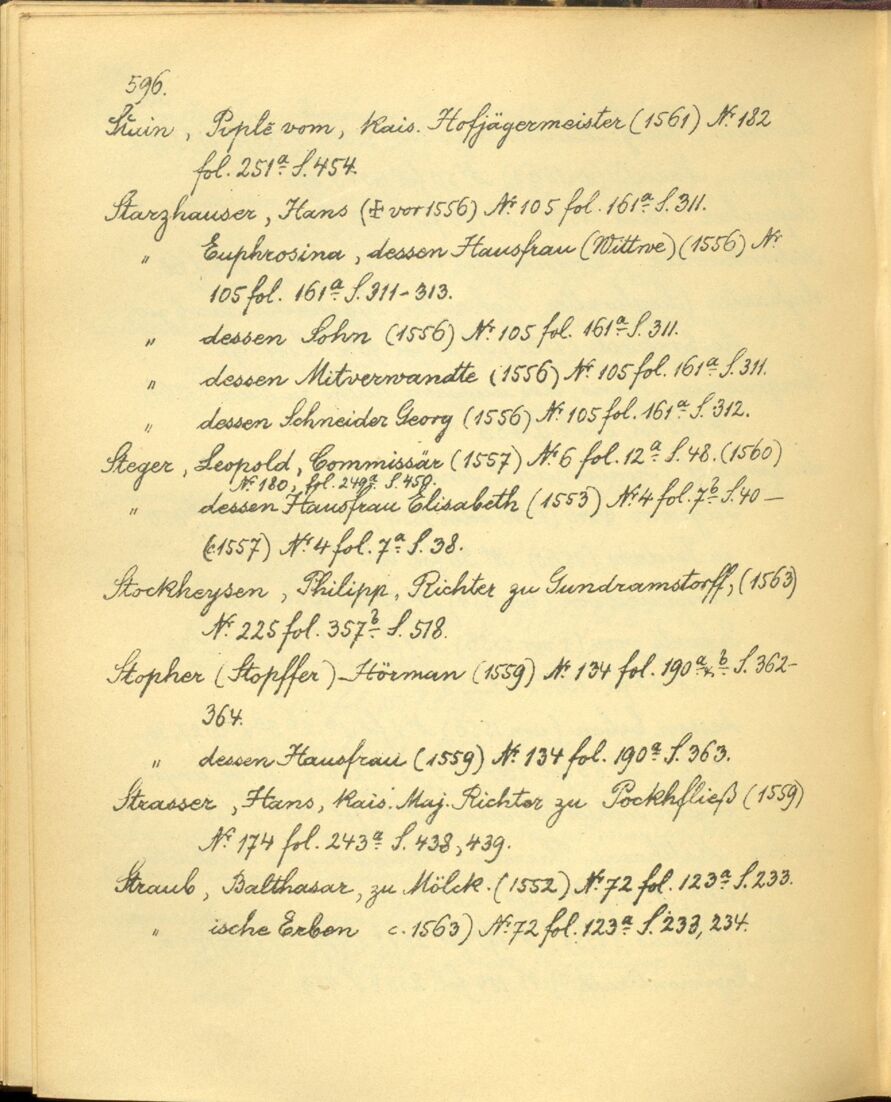 596.
Stuin, Piplĕ vom, Kais. Hofjägermeister (1561) Nr. 182
fol. 251a S. 454.
Starzhauser, Hans (‡ vor 1556) Nr 105 fol. 161a S. 311.
" Euphrosina, dessen Hausfrau (Wittwe) (1556) Nr
105 fol. 161a S. 311-313.
" dessen Sohn (1556) Nr. 105 fol. 161a S. 311.
" dessen Mitverwandte (1556) Nr 105 fol. 161a S. 311.
" dessen Schneider Georg (1556) Nr. 105 fol. 161a S. 312.
Steger, Leopold, Commissär (1557) Nr 6 fol. 12a S. 48. (1560)
Nr. 180, fol. 249a S. 450.
" dessen Hausfrau Elisabeth (1553) Nr 4 fol. 7b S. 40 –
(c. 1557) Nr 4 fol. 7a S. 38.
Stockheysen, Philipp, Richter zu Gundramstorff, (1563)
Nr. 225 fol. 357b S. 518.
Stopher (Stopffer) - Hörman (1559) Nr 134 fol. 190a & b S. 362-
364.
" dessen Hausfrau (1559) Nr. 134 fol. 190a S. 363.
Strasser, Hans, Kais. Maj. Richter zu Pockhfließ (1559)
Nr. 174 fol. 243a S. 438, 439.
Straub, Balthasar, zu Mölck. (1552) Nr. 72 fol. 123a S. 233.
" ische Erben c. 1563) Nr. 72 fol. 123a S. 233, 234.